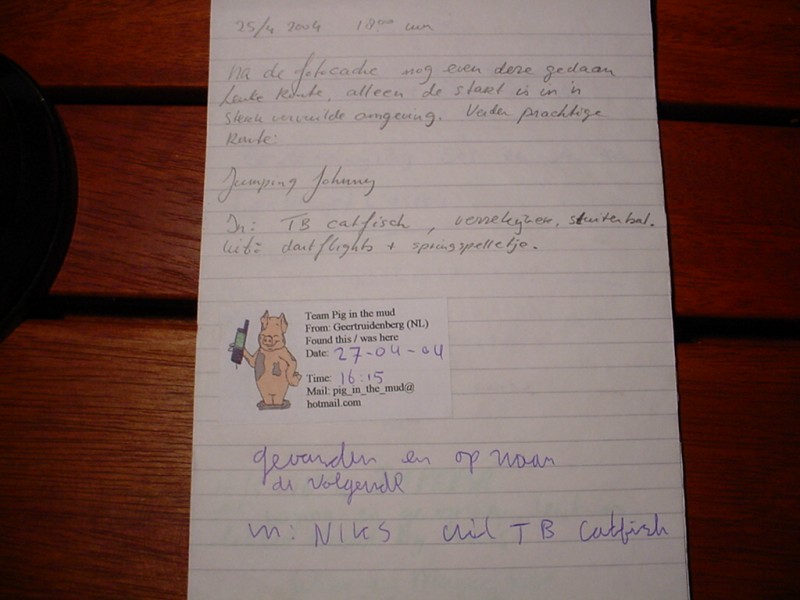 25/4 2004 18:00 uur
Na de fotocache nog even deze gedaan
Leuke Route, alleen de start is in 'n
sterk vervuilde omgeving. Verder prachtige
Route.
Jumping Johnny
In: TB catfisch, verrekijker, stuiterbal.
Uit: dartflights + springspelletje.
Team Pig in the mud
From: Geertruidenberg (NL)
Found this / was here
Date: 27-04-04
Time: 16:15
Mail: pig_in_the_mud@
hotmail.com
gevonden en op naar
de volgende
in: NIKS uit TB Catfish